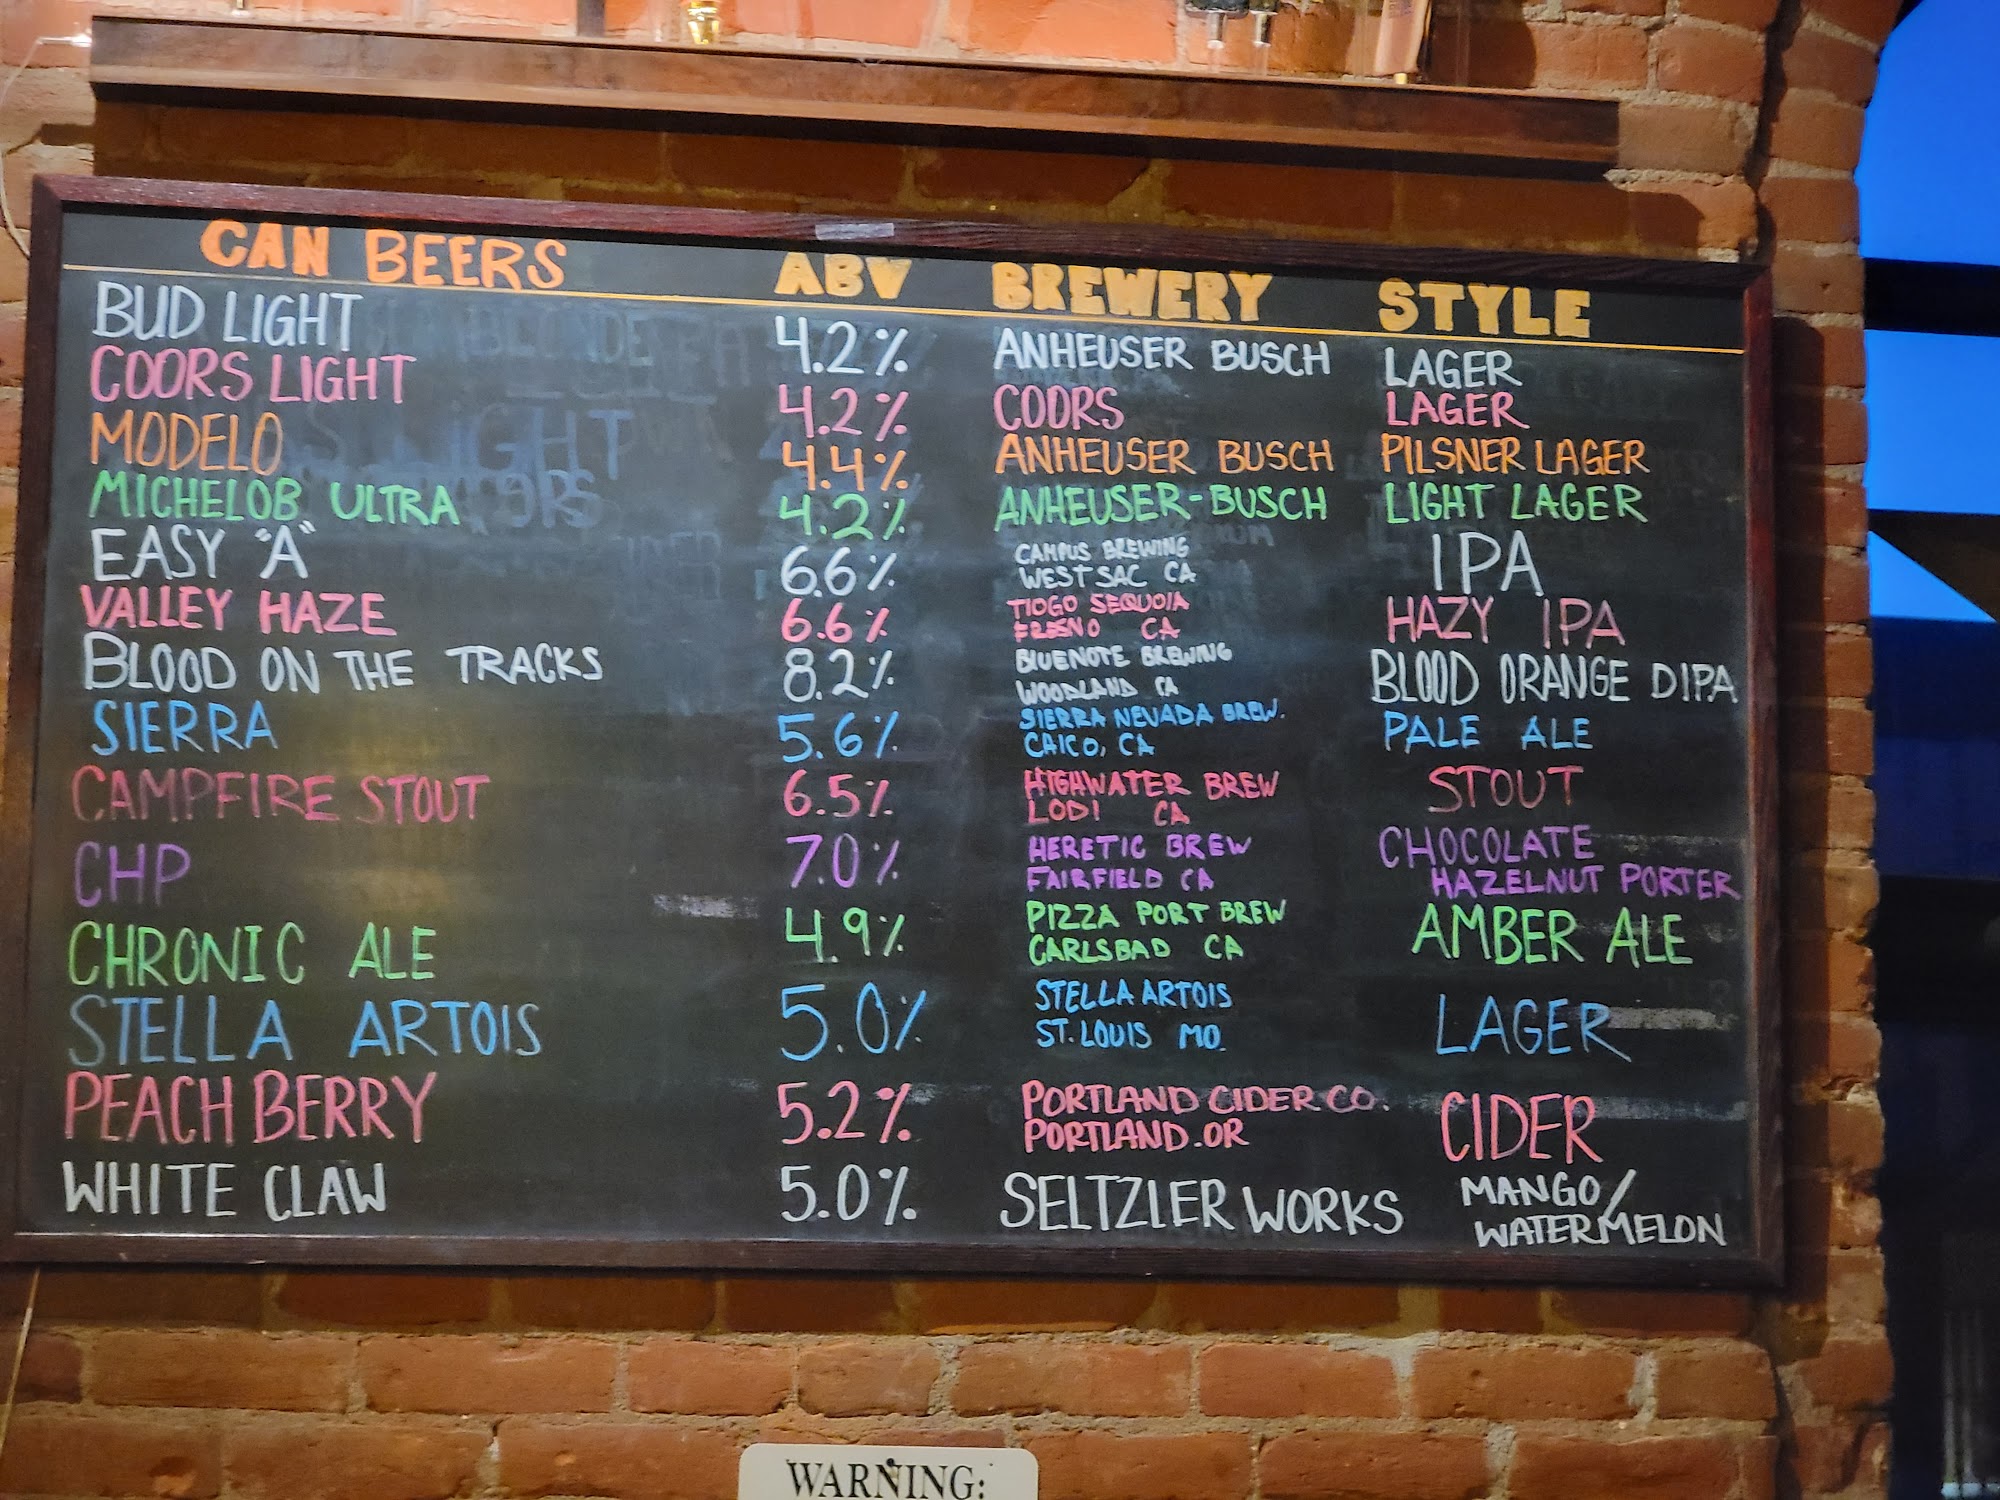 CAN BEERS ABV BREWERY STYLE
BUD LIGHT 4.2% ANHEUSER BUSCH LAGER
COORS LIGHT 4.2% COORS LAGER
MODELO 4.4% ANHEUSER BUSCH PILSNER LAGER
MICHELOB ULTRA 4.2% ANHEUSER-BUSCH LIGHT LAGER
EASY "A" 6.6% CAMPUS BREWING IPA
WEST SAC CA
VALLEY HAZE 6.6% TIOGO SEQUOIA HAZY IPA
FRESNO CA
BLOOD ON THE TRACKS 8.2% BLUENOTE BREWING BLOOD ORANGE DIPA
WOODLAND CA
SIERRA 5.6% SIERRA NEVADA BREW. PALE ALE
CHICO, CA
CAMPFIRE STOUT 6.5% HIGHWATER BREW STOUT
LODI CA
CHP 7.0% HERETIC BREW CHOCOLATE
FAIRFIELD CA HAZELNUT PORTER
CHRONIC ALE 4.9% PIZZA PORT BREW AMBER ALE
CARLSBAD CA
STELLA ARTOIS 5.0% STELLA ARTOIS LAGER
ST. LOUIS MO.
PEACH BERRY 5.2% PORTLAND CIDER CO. CIDER
PORTLAND.OR
WHITE CLAW 5.0% SELTZIER WORKS MANGO/
WATERMELON
WARNING: